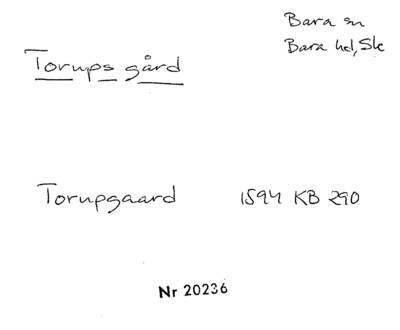 Bara sn
Bara hd, Sk
Torups gård
Torupgaard 1594 KB 290
Nr 20236